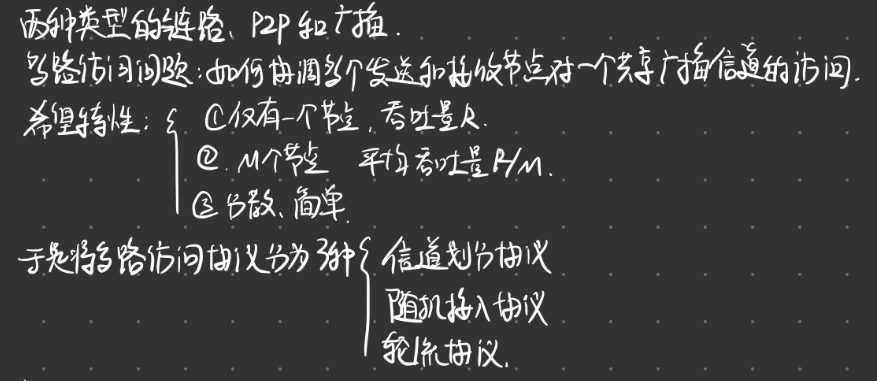 两种类型的链路、P2P和广播.
多路访问问题:如何协调多个发送和接收节点对一个共享广播信道的访问.
希望特性:{ ①仅有一个节点,吞吐量R.
②.M个节点 平均吞吐量R/M.
③分散、简单.
于是将多路访问协议分为3种{ 信道划分协议
随机接入协议
轮流协议.